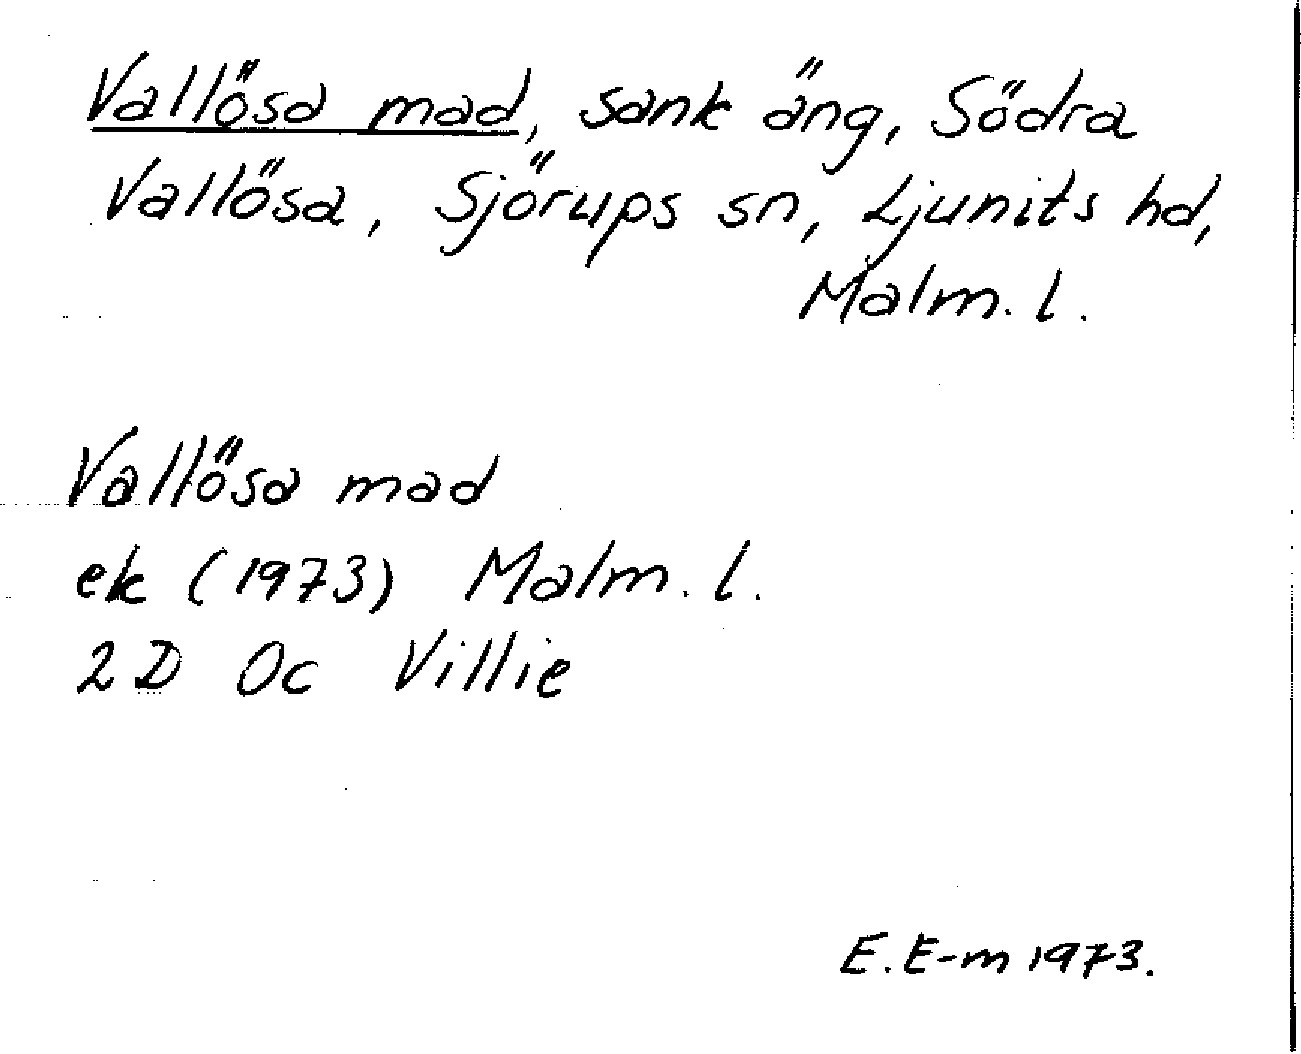 Vallösa mad, sank äng, Södra
Vallösa, Sjörups sn, Ljunits hd,
Malm. l.
Vallösa mad
ek (1973) Malm. l.
2 D Oc Villie
E. E-m 1973.